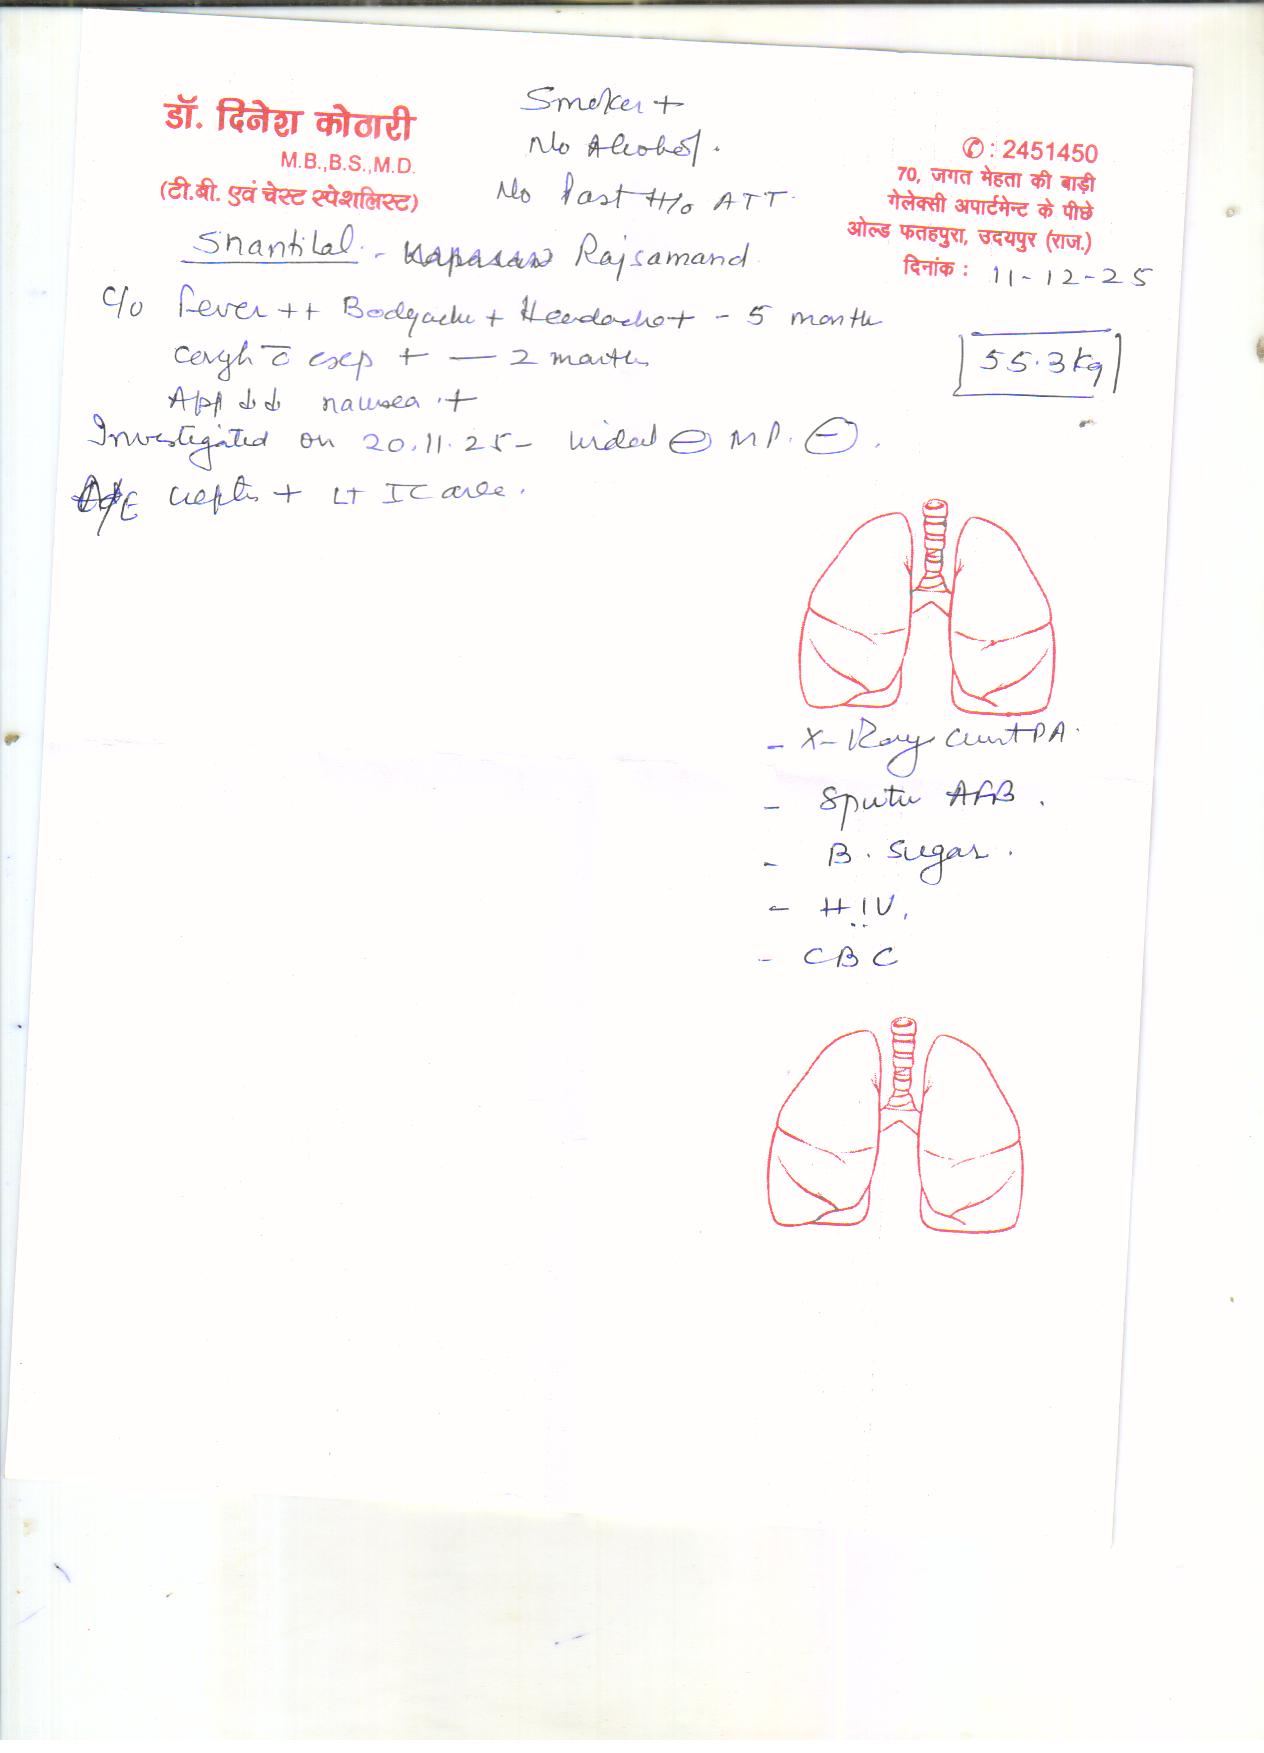 डॉ. दिनेश कोठारी
M.B.,B.S.,M.D.
(टी.बी. एवं चेस्ट स्पेशलिस्ट)
Smoker +
No Alcohol.
No Past H/o ATT.
✆ : 2451450
70, जगत मेहता की बाड़ी
गेलेक्सी अपार्टमेन्ट के पीछे
ओल्ड फतहपुरा, उदयपुर (राज.)
दिनांक : 11-12-25
Shantilal - Rajsamand
C/o Fever ++ Bodyache + Headache + - 5 month
Cough c̄ exp + — 2 months
App ↓↓ nausea +
55.3 kg
Investigated on 20.11.25 - widal ⊖ MP. ⊖.
O/E crepts + Lt IC area.
- X-Ray Chest PA.
- Sputu AFB.
- B. Sugar.
- HIV.
- CBC